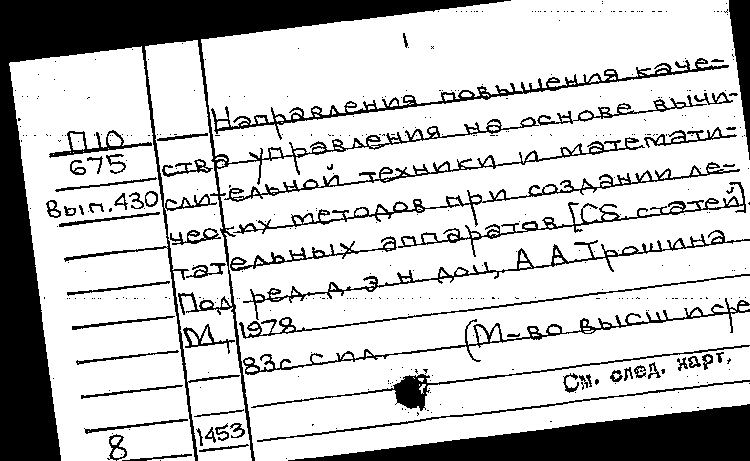 1
Направления повышения каче-
П10
675
ства управления на основе вычи-
Вып.430
слительной техники и математи-
ческих методов при создании ле-
тательных аппаратов. [Сб. статей].
Под ред. д. э. н доц, А А. Трошина
М., 1978.
83с с ил. (М-во высш и сре
См. след. карт,
8 1453